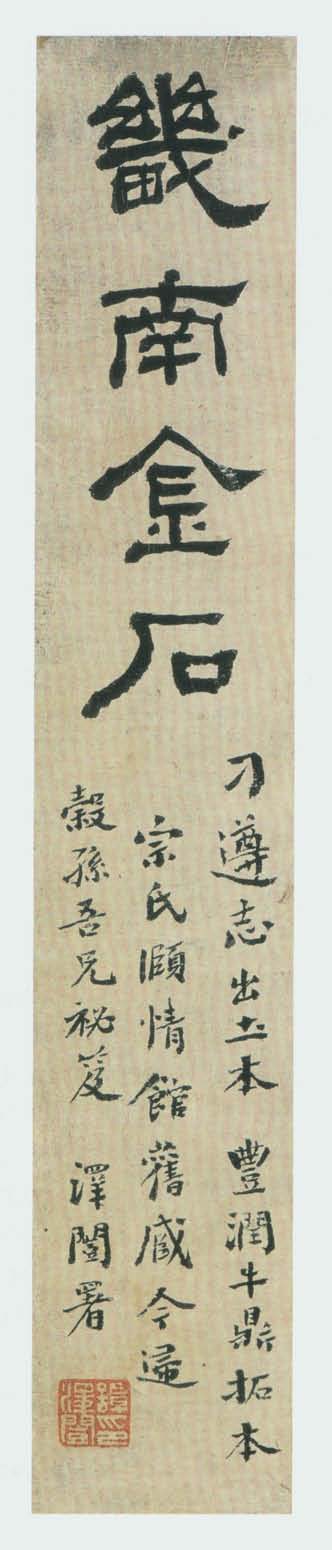 畿南金石
刁遵志出土本 豐潤牛鼎拓本
宗氏頤情館舊藏今遌
穀孫吾兄祕笈 澤闓署
譚澤闓印